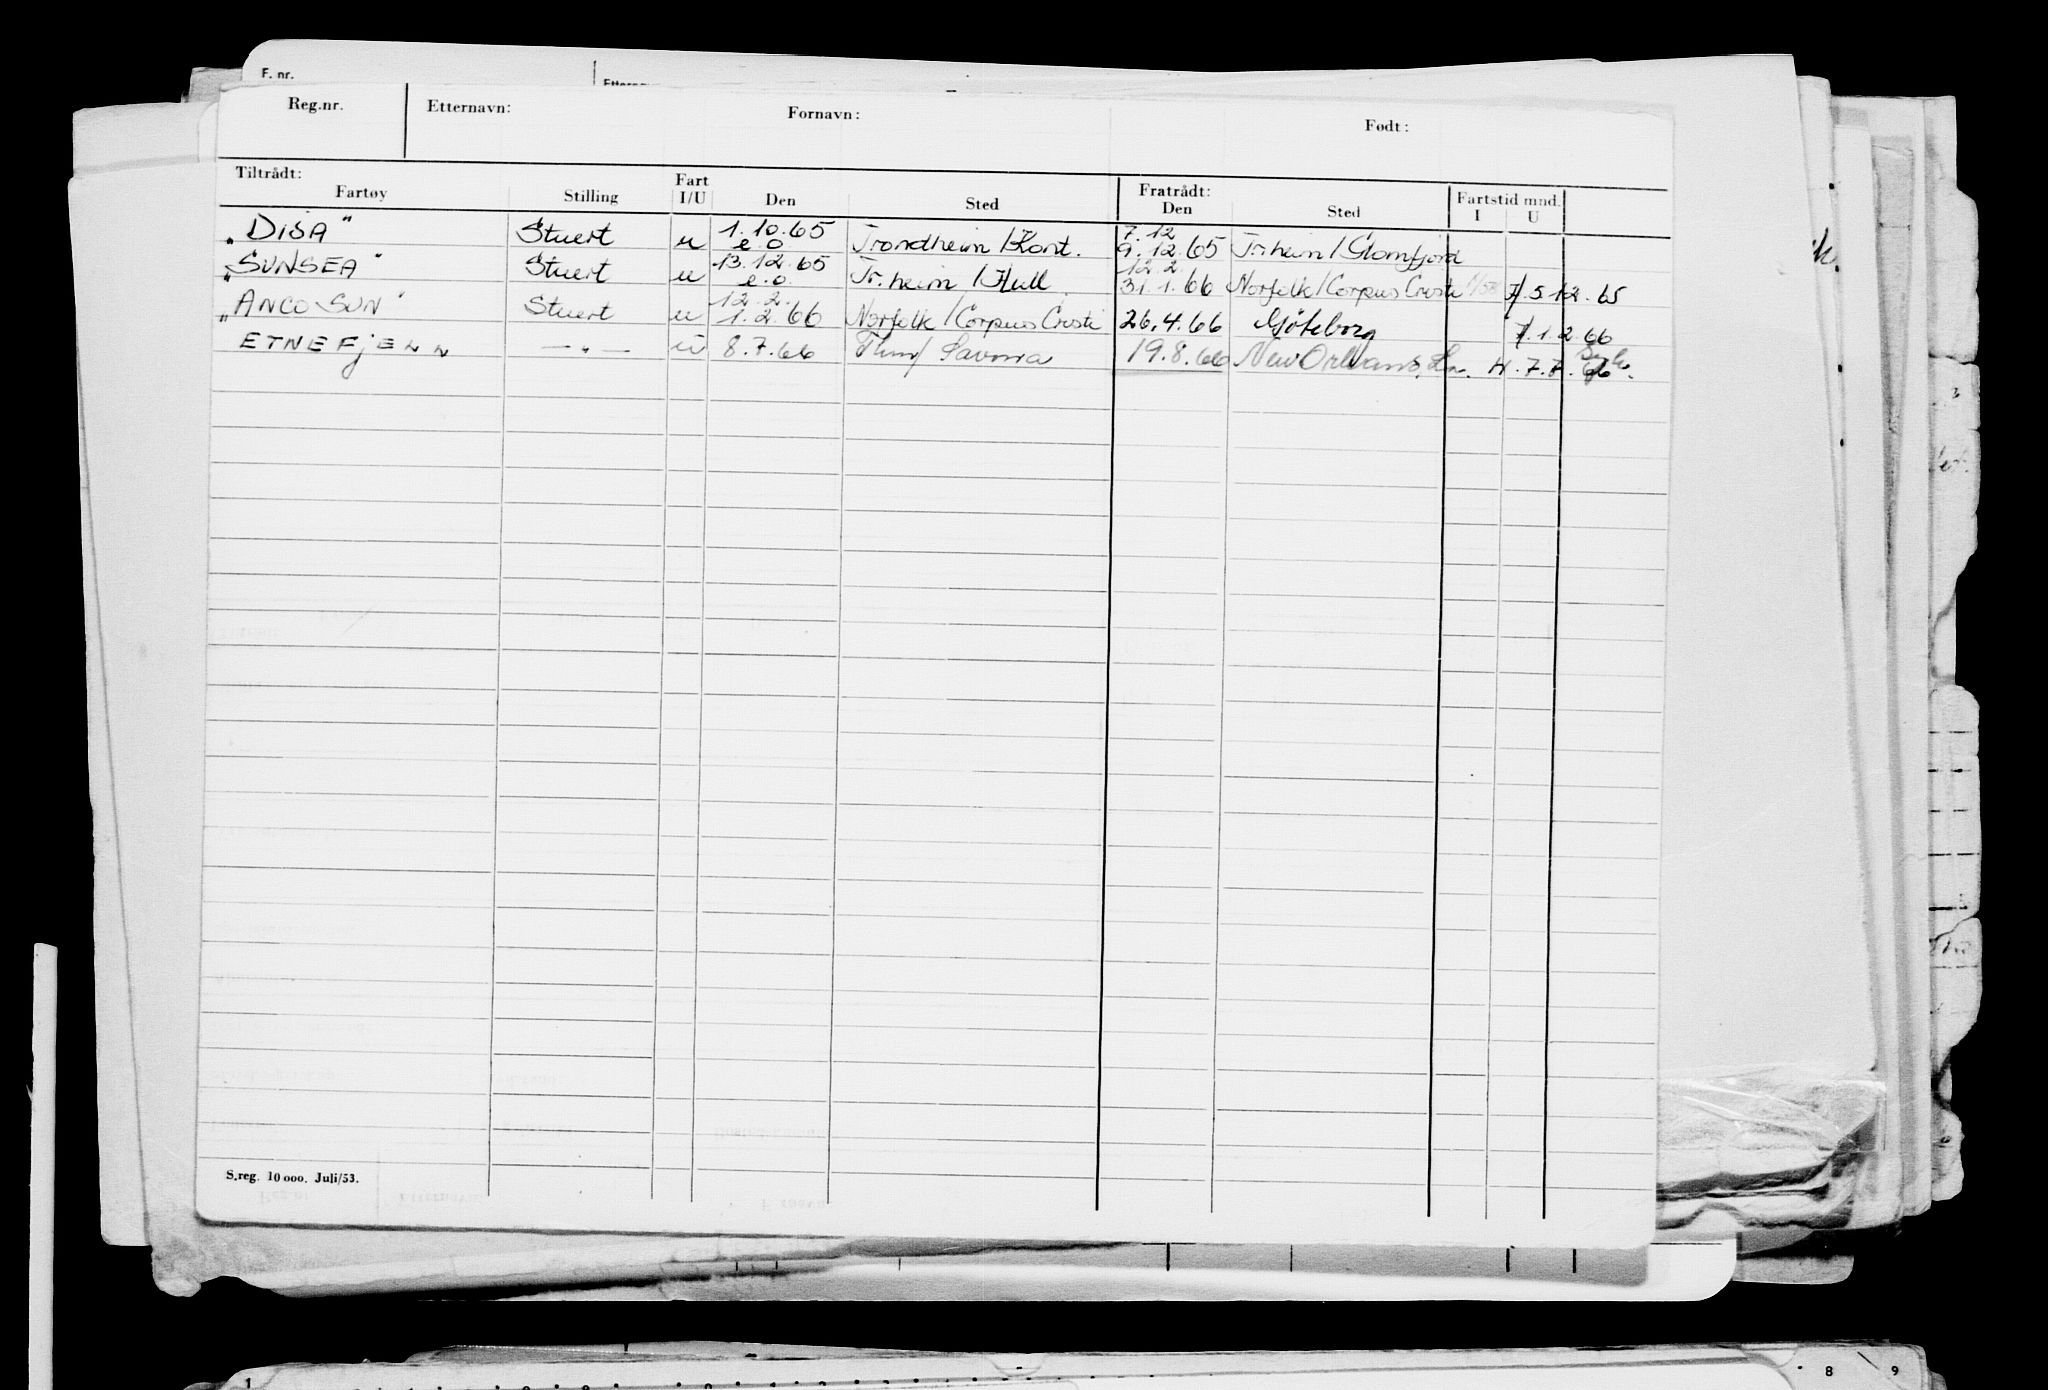 F. nr.
Reg.nr. Etternavn: Fornavn: Født:
Tiltrådt: Fratrådt:
Fartøy Stilling Fart I/U Den Sted Den Sted Fartstid mnd. I U
7.12
„DISA" Stuert u 1.10.65 Trondheim/Kont. 9.12.65 Tr.heim/Glomfjord
e.o 12.2
„SUNSEA" Stuert u 13.12.65 Tr.heim/Hull 31.1.66 Norfolk/Corpus Cristi 7/.5.12.65
e.o
12.2.
„ANCO SUN" Stuert u 1.2.66 Norfolk/Corpus Cristi 26.4.66 Göteborg 7/.1.2.66
ETNEFJELL — „ — u 8.7.66 Savona 19.8.66 New Orleans, La. H.7.7.
S.reg. 10 000. Juli/53.
8 9